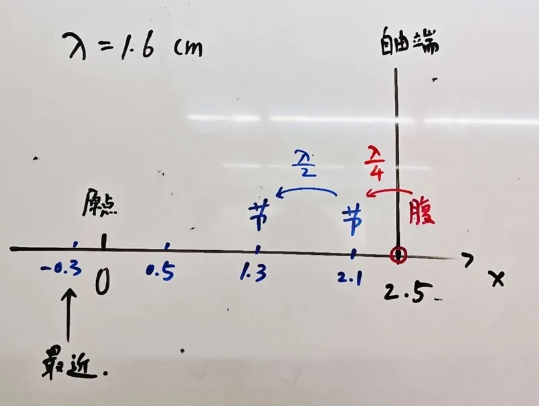 λ = 1.6 cm
自由端
λ/2
λ/4
原点
节
节
腹
-0.3
0
0.5
1.3
2.1
2.5
x
最近.